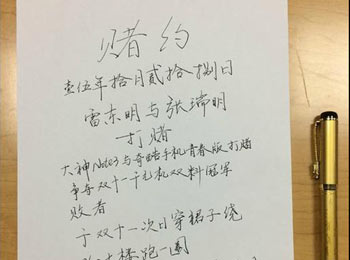 赌约
壹伍年拾月贰拾捌日
雷东明与张瑞明
打赌
大神Note3与奇酷手机青春版打赌
争夺双十一千元机双料冠军
败者
于双十一次日穿裙子绕
大楼跑一圈